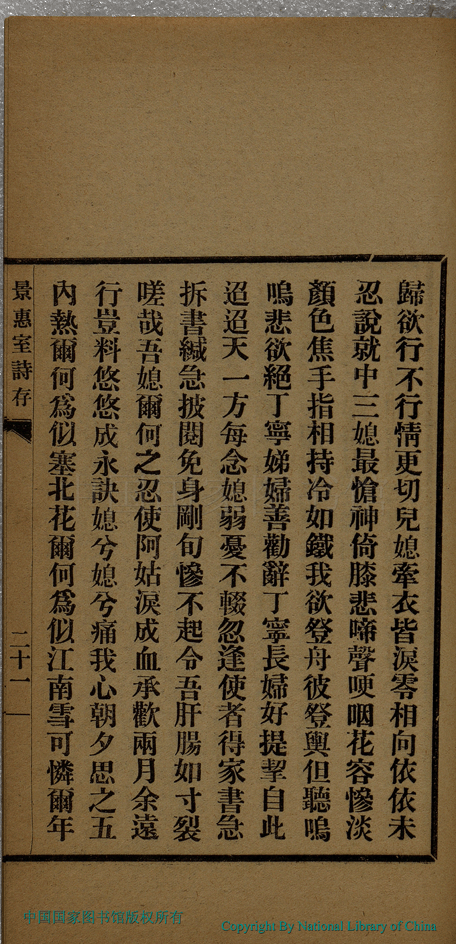 歸欲行不行情更切兒媳牽衣皆淚零相向依依未
忍說就中三媳最愴神倚膝悲啼聲哽咽花容慘淡
顏色焦手指相持冷如鐵我欲登舟彼登輿但聽嗚
嗚悲欲絕丁寧娣婦善勸辭丁寧長婦好提挈自此
迢迢天一方每念媳弱憂不輟忽逢使者得家書急
拆書緘急披閱免身剛句慘不起令吾肝腸如寸裂
嗟哉吾媳爾何之忍使阿姑淚成血承歡兩月余遠
行豈料悠悠成永訣媳兮媳兮痛我心朝夕思之五
內熱爾何爲似塞北花爾何爲似江南雪可憐爾年
景惠室詩存
二十一
中国国家图书馆版权所有
Copyright By National Library of China